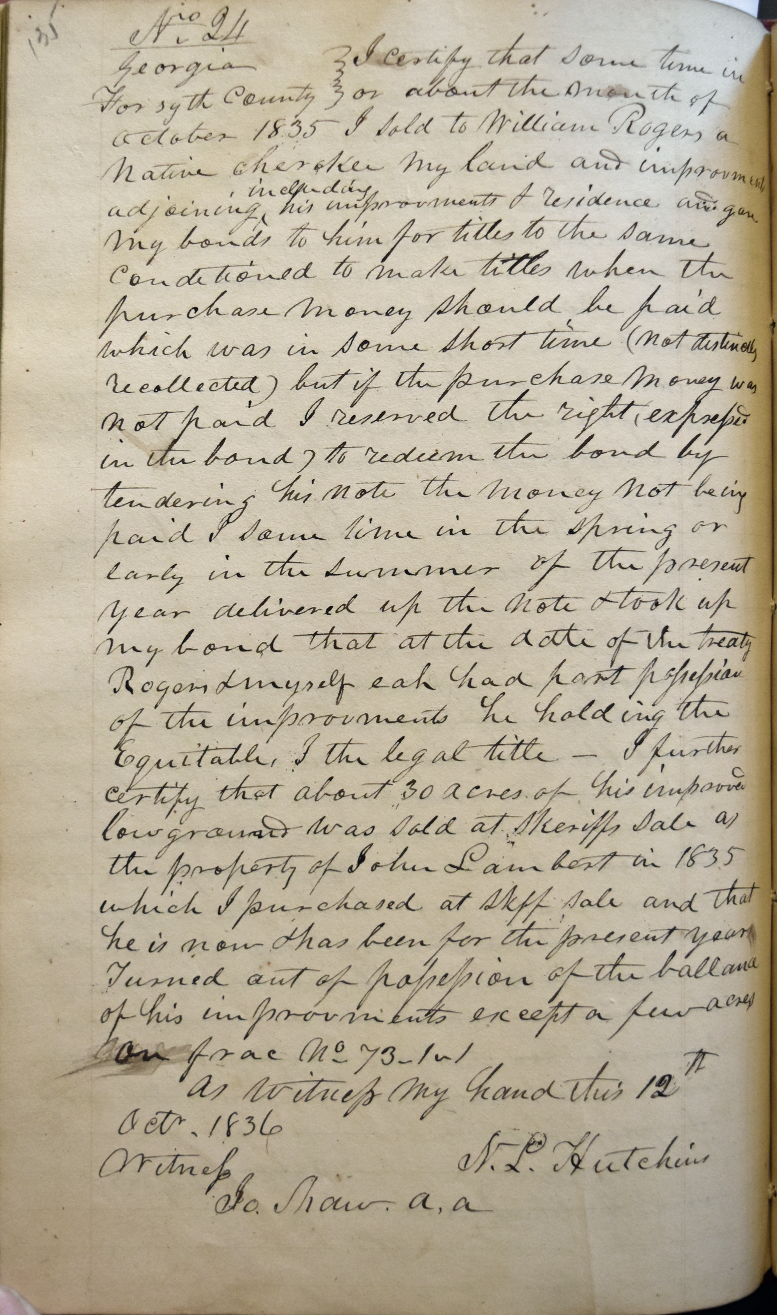 135
No 24
Georgia } I certify that some time in
Forsyth County } or about the month of
October 1835 I sold to William Rogers a
Native cherokee my land and improvments
including
adjoining, his improvments & residence and gave
my bonds to him for titles to the same
Conditioned to make titles when the
purchase money should be paid
which was in some short time (not distinctly
recollected) but if the purchase money was
not paid I reserved the right (expressed
in the bond) to redeem the bond by
tendering his note the money not being
paid I some time in the spring or
early in the summer of the present
year delivered up the note & took up
my bond that at the date of the treaty
Rogers & myself eah had part possession
of the improvments he holding the
Equitable, I the legal title — I further
certify that about 30 acres of his improved
low ground was sold at sheriffs sale as
the property of John Lambert in 1835
which I purchased at shff sale and that
he is now & has been for the present year
Turned out of possession of the ballance
of his improvments except a few acres
on frac No 73-1-1
As witness my hand this 12th
Octr. 1836
Witness N. L. Hutchins
Jo. Shaw. a. a